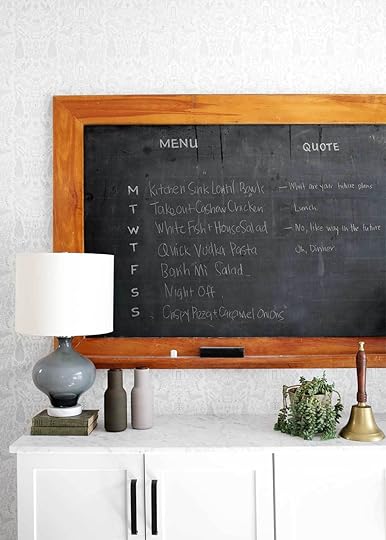 MENU
M Kitchen Sink Lentil Bowls
T Takeout Cashew Chicken
W White Fish + House Salad
T Quick Vodka Pasta
F Banh Mi Salad
S Night Off
S Crispy Pizza + Caramel Onions
QUOTE
- What are your future plans
- Lunch.
- No, like way in the future
Oh, Dinner.